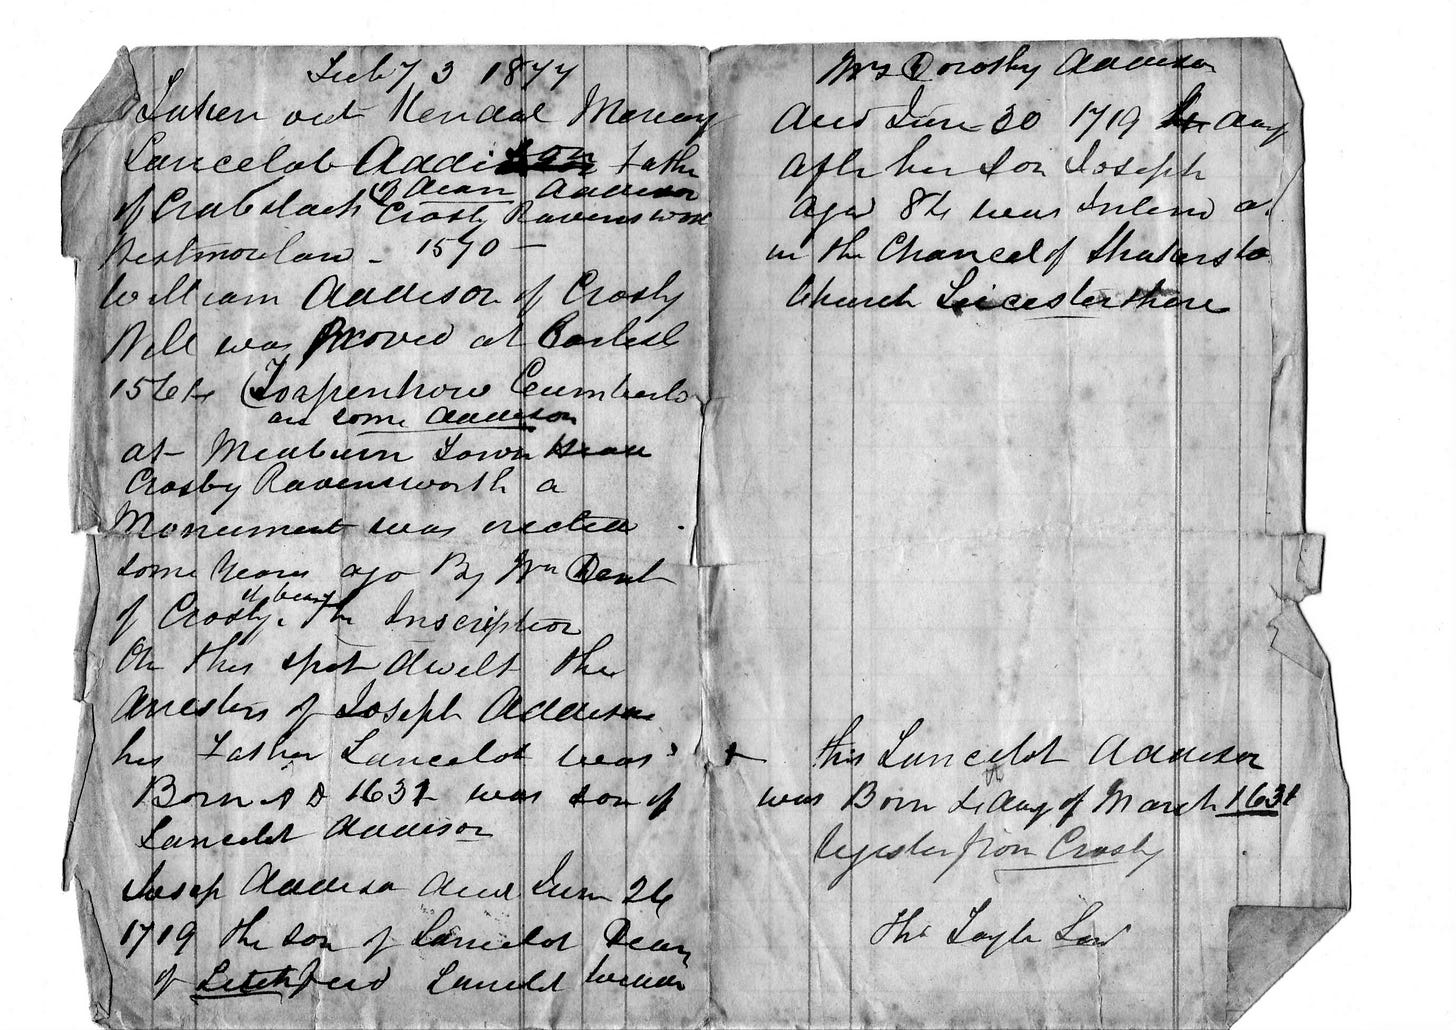 Feby 3 1877
Taken out Kendal Mercury
Lancelot Addison Father
of Dean Addison
of Crabstack Crosby Ravensworth
Westmorlan - 1570 -
William Addison of Crosby
Will was Proved at Carlisle
1564 (Torpenhow Cumberla
are some Addison
at Meaburn Town Head
Crosby Ravensworth a
Monument was erected
some Years ago By Wm Dent
of Crosby it bears the Inscription
On this spot dwelt the
Ancesters of Joseph Addison
his Father Lancelot was
Born A D 1632 was son of
Lancelot Addison
Josep Addison died June 26
1719 the son of Lancelot Dean
of Litchfield Lancelot
Mrs Dorothy Addison
died June 30 1719 4 day
after her son Joseph
aged 84 was
in the Chancel of Shakersto
Church Leicestershire
+ this Lancelot Addison
was Born 4 day of March 1631
register from Crosby
Ths Law